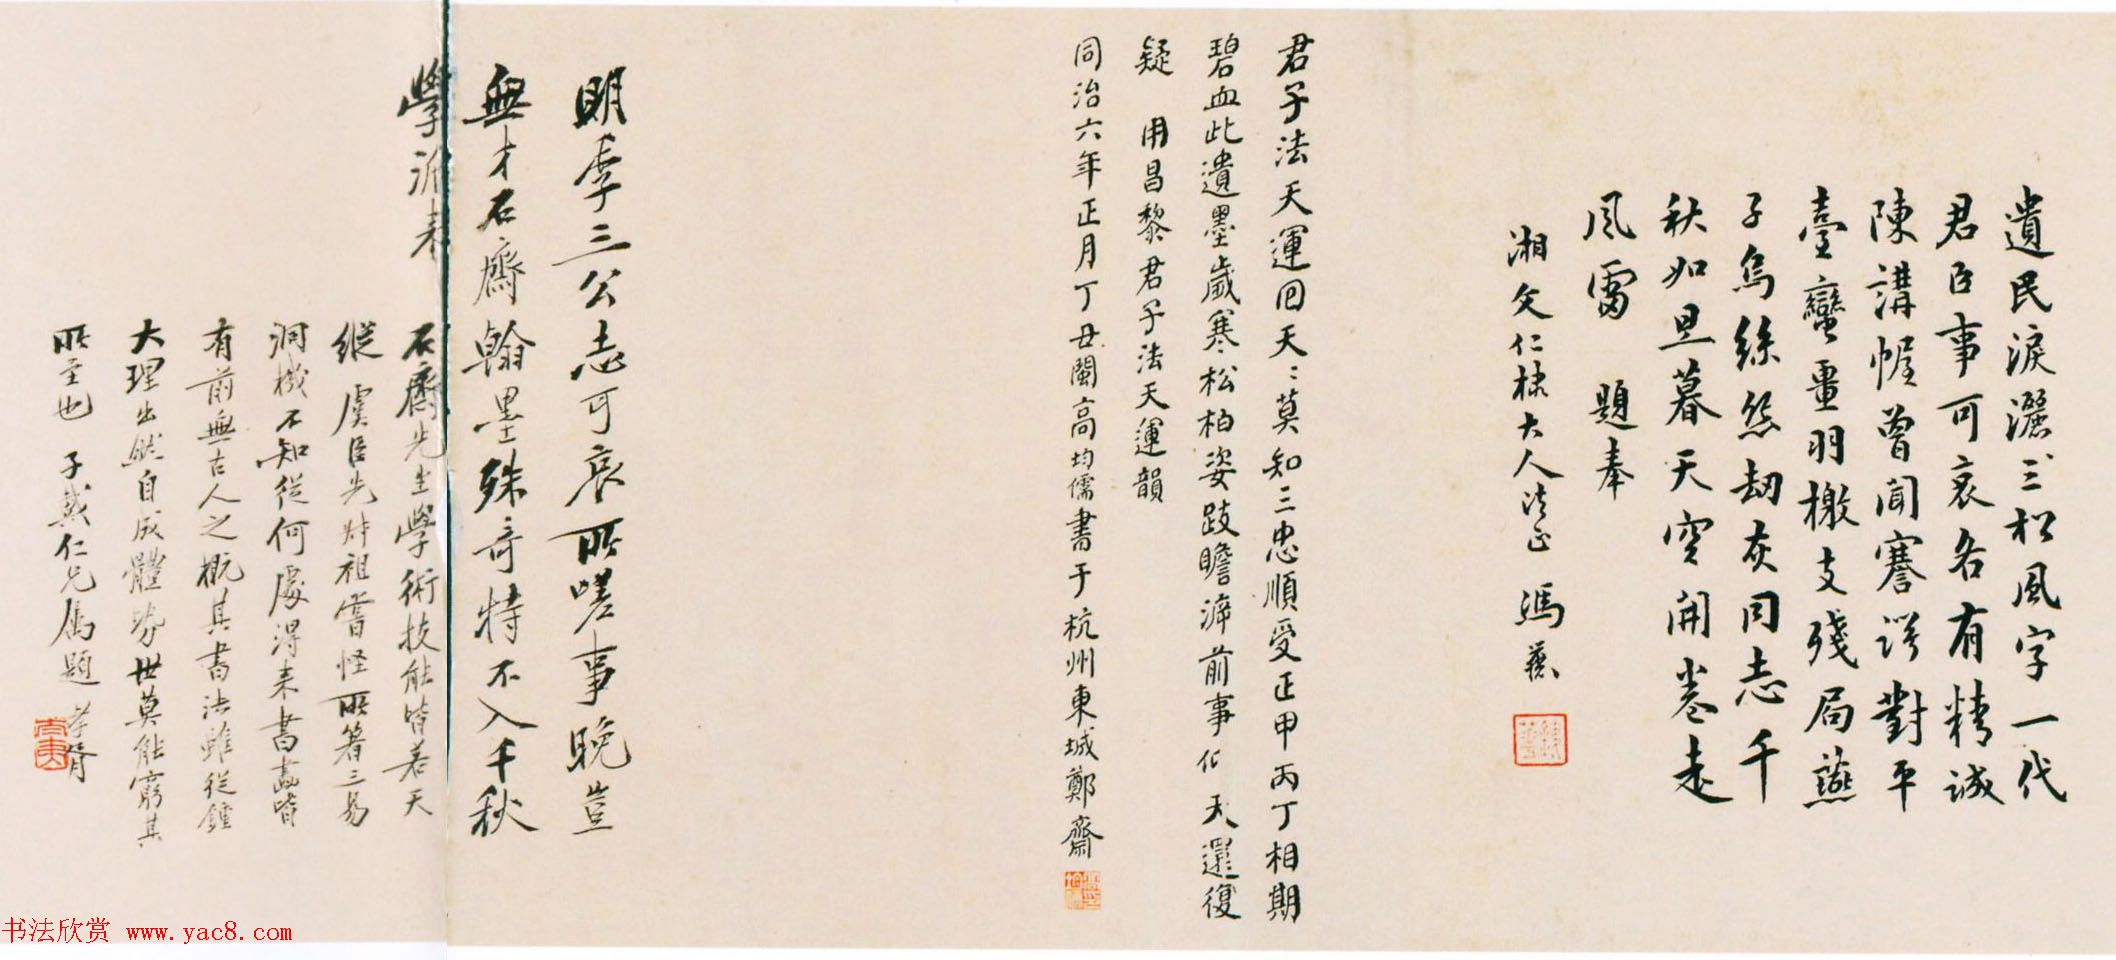 遺民淚灑三松風字一代
君臣事可哀各有精誠
陳講幄曾聞謇諤對平
臺蠻畺羽檄支殘局燕
子烏絲怨劫灰同志千
秋如旦暮天空開卷走
風雷 題奉
湘文仁棣大人法正 馮
君子法天運回天天莫知三忠順受正甲丙丁相期
碧血此遺墨歲寒松柏姿跂瞻漳前事仰天還復
疑 用昌黎君子法天運韻
同治六年正月丁丑閩高均儒書于杭州東城鄭齋
明季三公志可哀所嗟事晚豈
無才石齋翰墨殊奇特不入千秋
學派來
石齋先生學術技能皆若天
縱虞臣先叔祖嘗怪所著三易
洞機不知從何處得来書畫皆
有前無古人之概其書法雖從鍾
大理出然自成體勢世莫能窮其
所至也 子箴仁兄屬題
书法欣赏 www.yac8.com